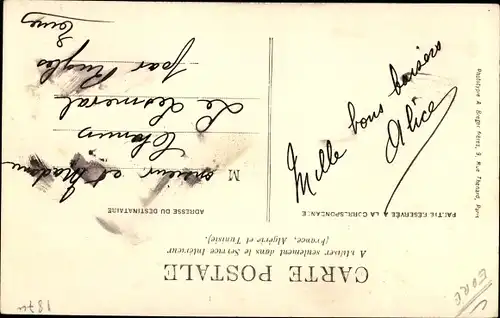 CARTE POSTALE
A utiliser seulement dans le Service Intérieur
(France, Algérie et Tunisie).
PARTIE RÉSERVÉE A LA CORRESPONDANCE
ADRESSE DU DESTINATAIRE
Mille bons baisers
Alice
Monsieur et Madame
Le Lesmeral
par Rugles
Eure
Phototypie A. Breger frères, 9, Rue Thénard, Paris
EURE